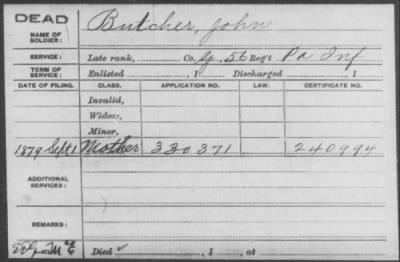 DEAD
NAME OF SOLDIER: Butcher, John
SERVICE: Late rank, Co. G, 56 Reg't Pa Inf
TERM OF SERVICE: Enlisted , 1 Discharged , 1
DATE OF FILING. CLASS. APPLICATION NO. LAW. CERTIFICATE NO.
Invalid,
Widow,
Minor,
1879 Sept 1 Mother 330371 240994
ADDITIONAL SERVICES:
REMARKS:
Died ✓ , 1 , at